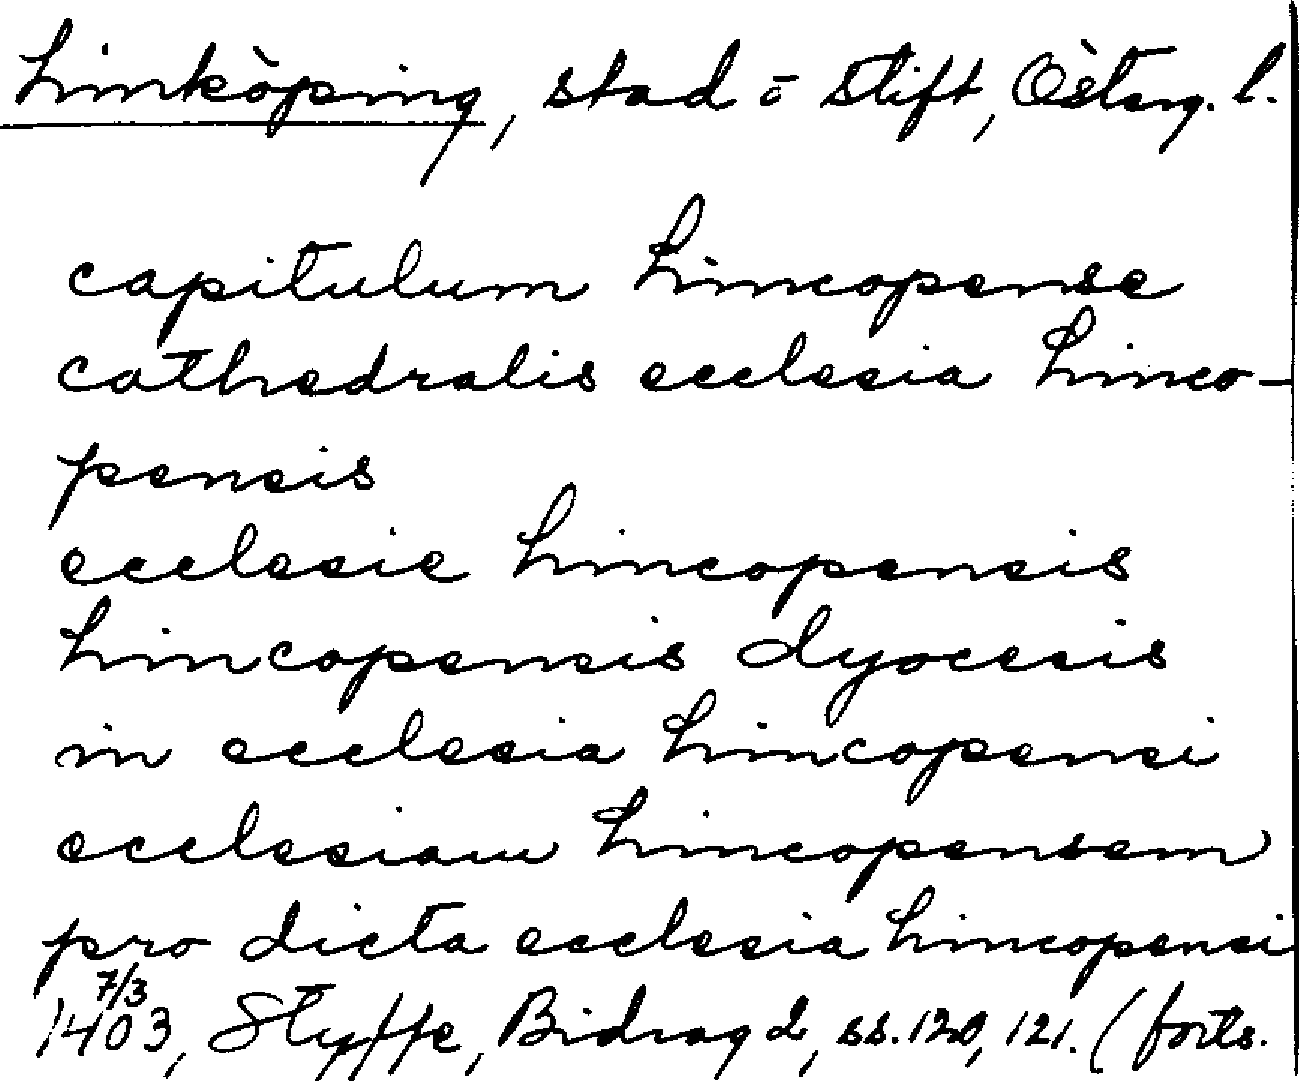 Linköping, stad o stift, Österg. l.
capitulum Lincopense
cathedralis ecclesia Linco-
pensis
ecclesie Lincopensis
Lincopensis dyocesis
in ecclesia Lincopensi
ecclesiam Lincopensem
pro dicta ecclesia Lincopensi
7/3
1403, Styffe, Bidrag 2, ss. 120, 121. (forts.